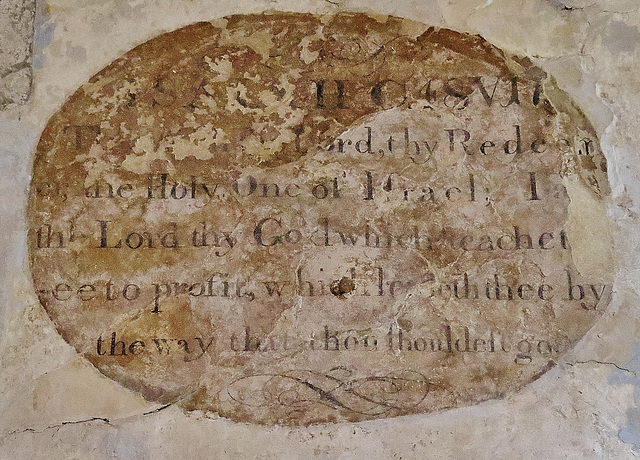 ISAIAH C 48 V 17
Lord, thy Redeem
er, the Holy One of Iſrael; I a
the Lord thy God which teachet
ee to profit, which leadeth thee by
the way that thou ſhouldeſt go